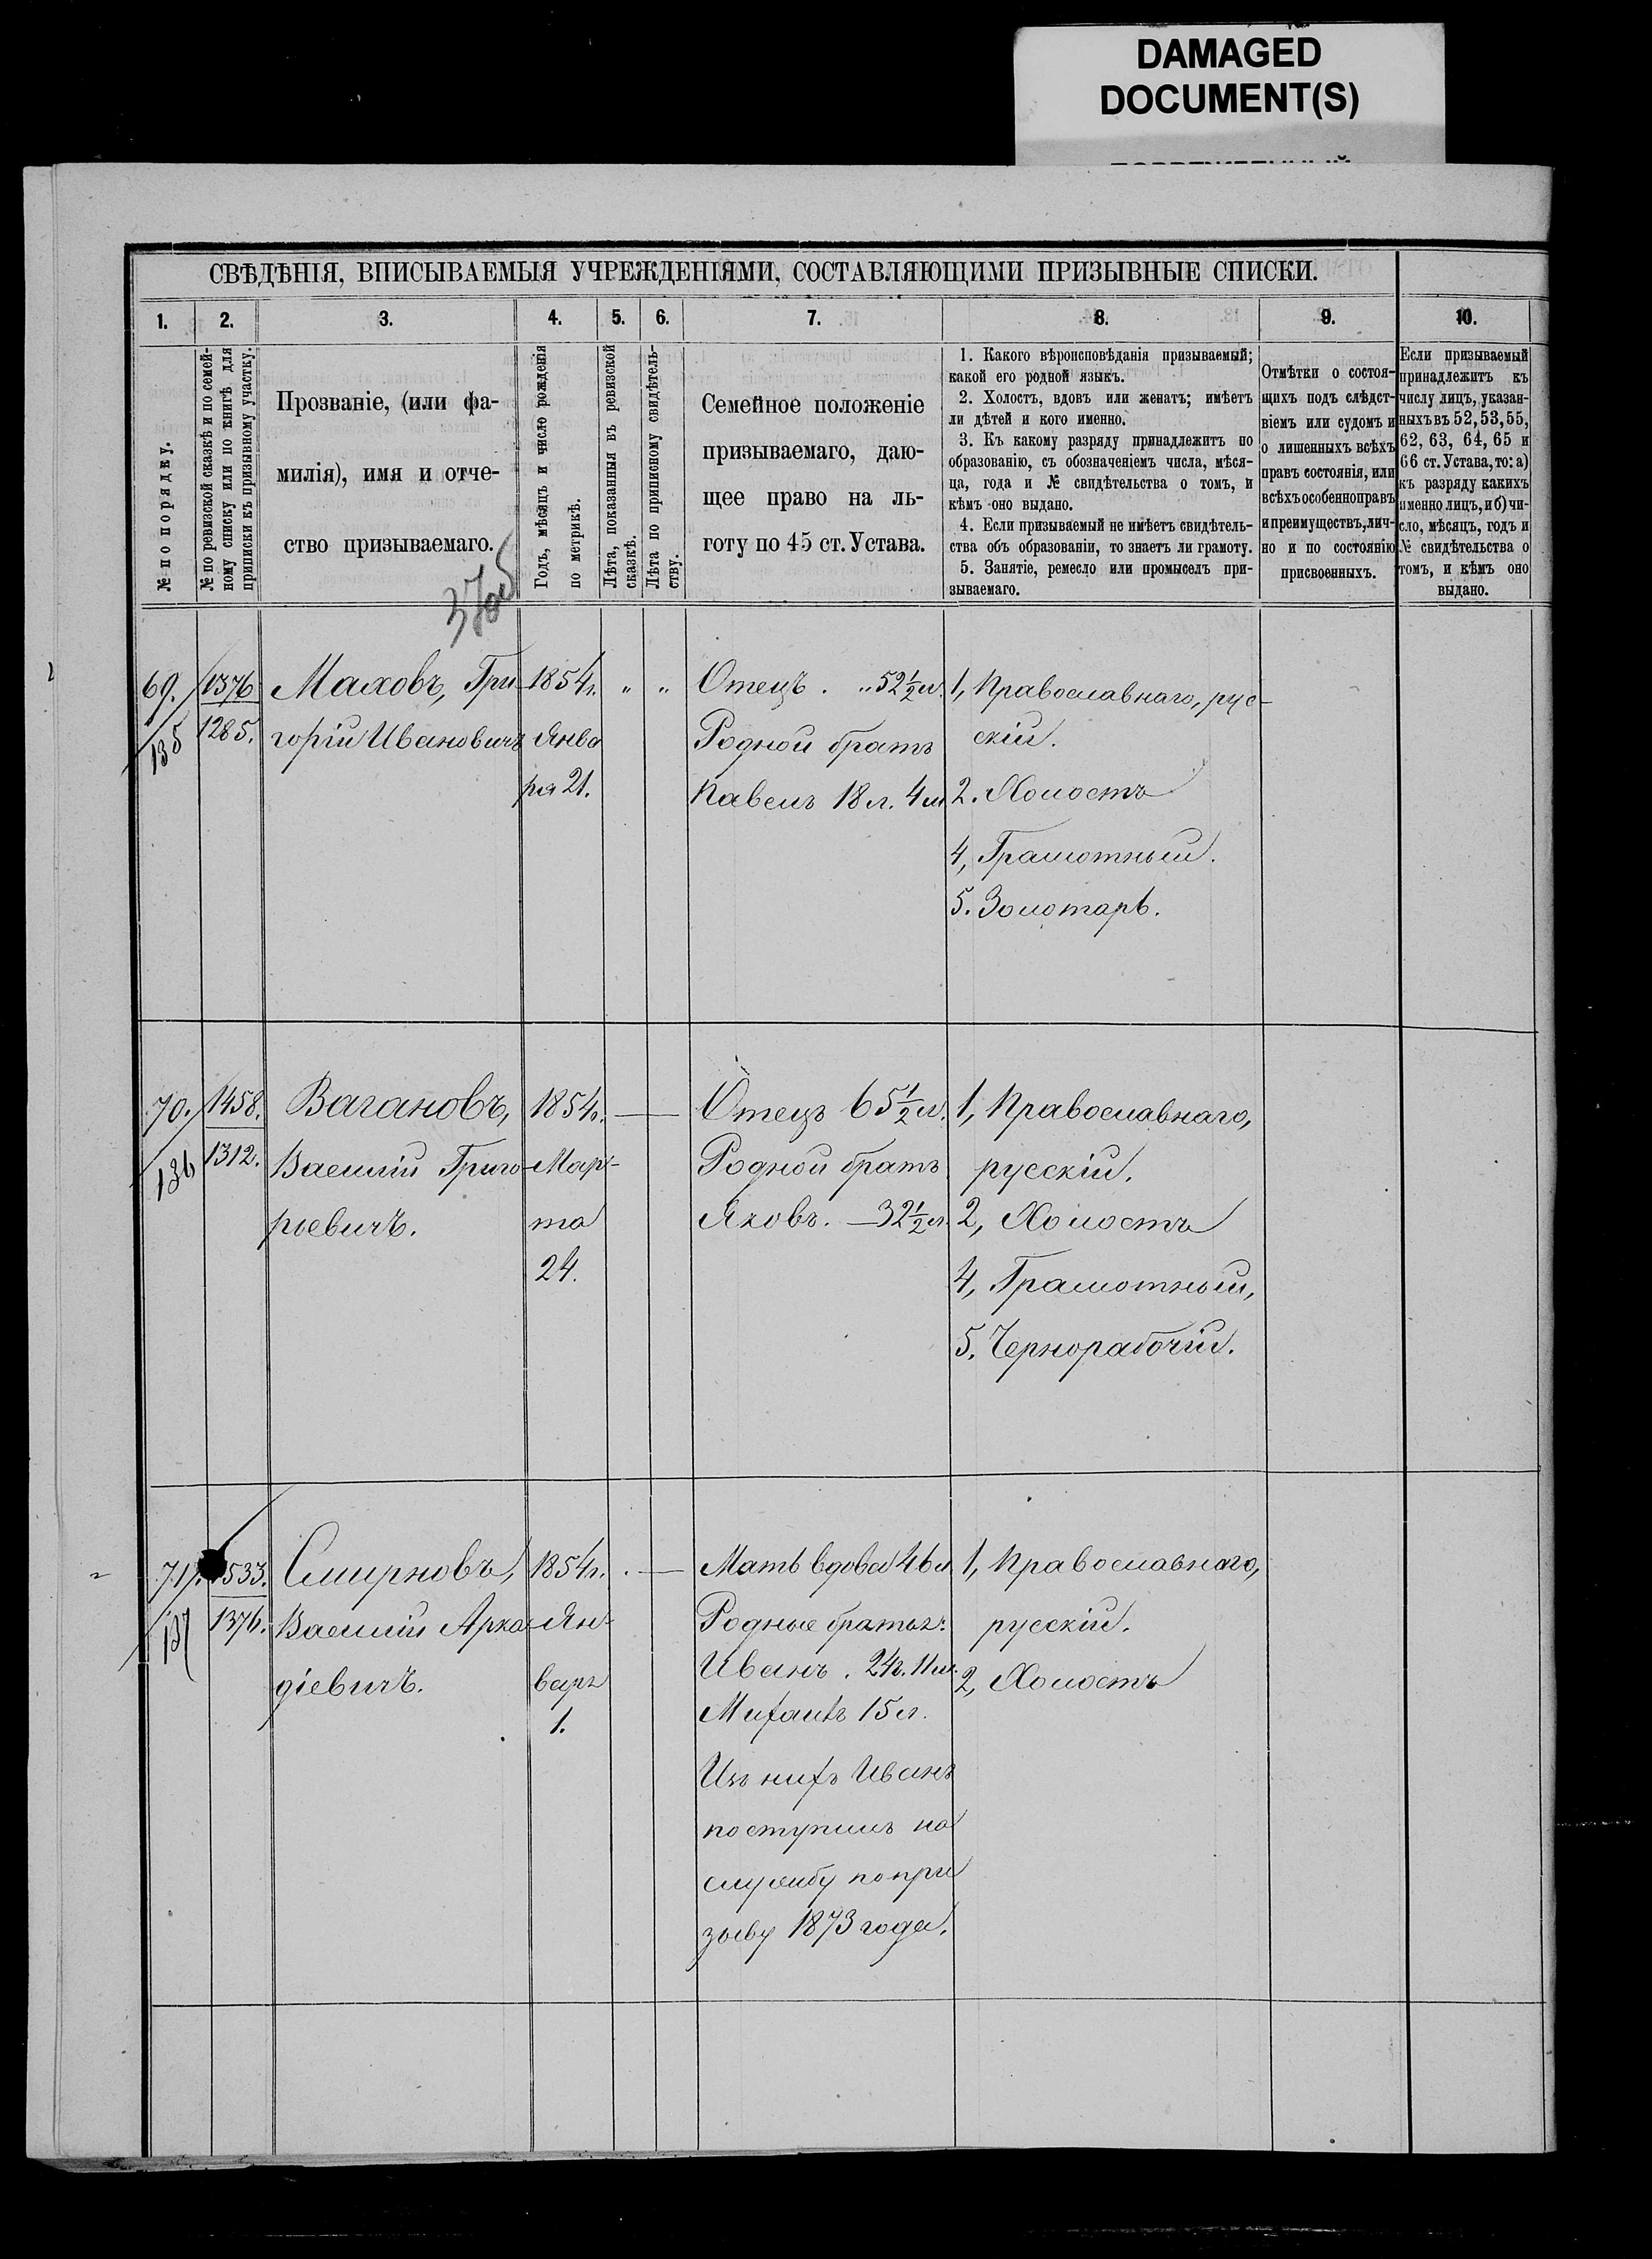 DAMAGED
DOCUMENT(S)
СВѢДѢНІЯ, ВПИСЫВАЕМЫЯ УЧРЕЖДЕНІЯМИ, СОСТАВЛЯЮЩИМИ ПРИЗЫВНЫЕ СПИСКИ.
1. 2. 3. 4. 5. 6. 7. 8. 9. 10.
№ по порядку.
№ по ревизской сказкѣ и по семей-
ному списку или по книгѣ для
приписки къ призывному участку.
Прозваніе, (или фа-
милія), имя и отче-
ство призываемаго.
Годъ, мѣсяцъ и число рожденія
по метрикѣ.
Лѣта, показанныя въ ревизской
сказкѣ.
Лѣта по приписному свидѣтель-
ству.
Семейное положеніе
призываемаго, даю-
щее право на ль-
готу по 45 ст. Устава.
1. Какого вѣроисповѣданія призываемый;
какой его родной языкъ.
2. Холостъ, вдовъ или женатъ; имѣетъ
ли дѣтей и кого именно.
3. Къ какому разряду принадлежитъ по
образованію, съ обозначеніемъ числа, мѣся-
ца, года и № свидѣтельства о томъ, и
кѣмъ оно выдано.
4. Если призываемый не имѣетъ свидѣтель-
ства объ образованіи, то знаетъ ли грамоту.
5. Занятіе, ремесло или промыселъ при-
зываемаго.
Отмѣтки о состоя-
щихъ подъ слѣдст-
віемъ или судомъ и
о лишенныхъ всѣхъ
правъ состоянія, или
всѣхъ особенно правъ
и преимуществъ, лич-
но и по состоянію
присвоенныхъ.
Если призываемый
принадлежитъ къ
числу лицъ, указан-
ныхъ въ 52, 53, 55,
62, 63, 64, 65 и
66 ст. Устава, то: а)
къ разряду какихъ
именно лицъ, и б) чи-
сло, мѣсяцъ, годъ и
№ свидѣтельства о
томъ, и кѣмъ оно
выдано.
69.
135
1376
1285.
Маховъ, Гри
горій Ивановичъ
1854г.
Янва
ря 21.
" "
Отецъ . „ 52½ л.
Родной братъ
Павелъ 18 л. 4 м
1, Православнаго, рус-
скій.
2. Холостъ
4, Грамотный.
5. Золотарь.
70.
136
1458.
1312.
Вагановъ,
Василій Григо
рьевичъ.
1854г.
Мар-
та
24.
Отецъ 65½ л.
Родной братъ
Яковъ. — 32½ л.
1, Православнаго,
русскій.
2, Холостъ
4, Грамотный,
5. Чернорабочій.
71.
137
1533.
1376.
Смирновъ,
Василій Арка
діевичъ.
1854г.
Ян-
варя
1.
Мать вдова 46 л
Родные братья:
Иванъ. 24г. 11 м.
Михаилъ 15 л.
Изъ нихъ Иванъ
поступилъ на
службу по при
зыву 1873 года.
1, Православнаго,
русскій.
2, Холостъ